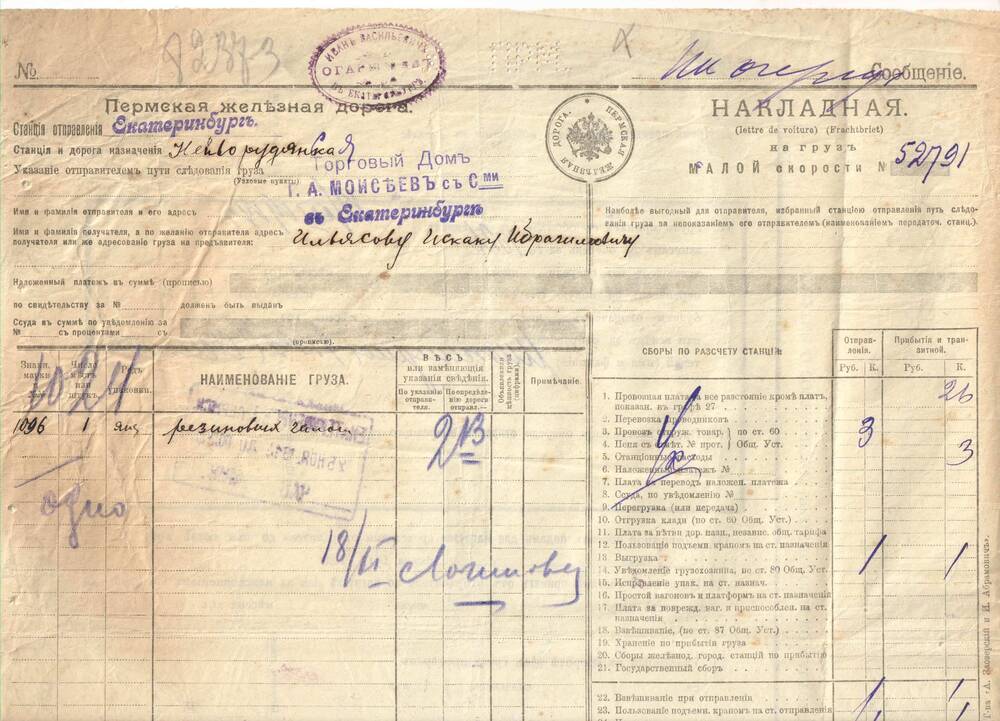 № 82373
ИВАНЪ ВАСИЛЬЕВИЧЪ
ВЪ ЕКАТЕРИНБУРГѢ
Сообщеніе.
Пермская желѣзная дорога.
Станція отправленія Екатеринбургъ.
Станція и дорога назначенія Нейворудянская
Указаніе отправителемъ пути слѣдованія груза
(Узловые пункты)
Торговый Домъ
Г. А. МОИСѢЕВЪ съ С-ми
въ Екатеринбургѣ
Имя и фамилія отправителя и его адресъ
Имя и фамилія получателя, а по желанію отправителя адресъ
получателя или же адресованіе груза на предъявителя:
Ильясову Искаку Ибрагимовичу
Наложенный платежъ въ суммѣ (прописью)
по свидѣтельству за № долженъ быть выданъ
Ссуда въ суммѣ по увѣдомленію за
№ съ процентами съ
(прописью).
ПЕРМСКАЯ ЖЕЛѢЗНАЯ ДОРОГА.
НАКЛАДНАЯ.
(lettre de voiture) (Frachtbrief)
на грузъ
МАЛОЙ скорости № 52791
Наиболѣе выгодный для отправителя, избранный станціею отправленія путь слѣдо-
ванія груза за непоказаніемъ его отправителемъ (наименованіемъ передаточ. станц.).
Знаки, марки
Число мѣстъ или штукъ.
Родъ упаковки.
НАИМЕНОВАНІЕ ГРУЗА.
ВѢСЪ
или замѣняющія
указанія свѣдѣнія.
По указанію отправи-
теля.
По опредѣ-
ленію дороги
отправл.
Объявленная цѣнность груза
Примѣчаніе.
1096 1 ящ резиновыхъ галошъ 2 13
одно
18/
СБОРЫ ПО РАЗСЧЕТУ СТАНЦІЙ:
Отправ-
ленія.
Прибытія и тран-
зитной.
Руб. К. Руб. К.
1. Провозная плата за все разстояніе кромѣ плат,
показан. въ графѣ 27 26
2. Перевозка проводниковъ
3. Провозъ сгруж. товар. по ст. 60 3
4. Пеня съ замѣт. № прот. Общ. Уст.
5. Станціонные расходы 3
6. Наложенный платежъ №
7. Плата за переводъ наложен. платежа
8. Ссуда, по увѣдомленію №
9. Перегрузка (или передача)
10. Отгрузка клади (по ст. 60 Общ. Уст.)
11. Плата за вѣтви дор. назн., независ. общ. тарифа
12. Пользованіе подъемн. краномъ на ст. назначенія
13. Выгрузка 1 1
14. Увѣдомленіе грузохозяина, по ст. 80 Общ. Уст.
15. Исправленіе упак. на ст. назнач.
16. Простой вагоновъ и платформъ на ст. назначенія
17. Плата за поврежд. ваг. и приспособлен. на ст.
назначенія
18. Взвѣшиваніе, (по ст. 87 Общ. Уст.)
19. Храненіе по прибытіи груза
20. Сборы желѣзнод. город. станцій по прибытію
21. Государственный сборъ
22. Взвѣшиваніе при отправленіи
23. Пользованіе подъемн. краномъ на ст. отправленія